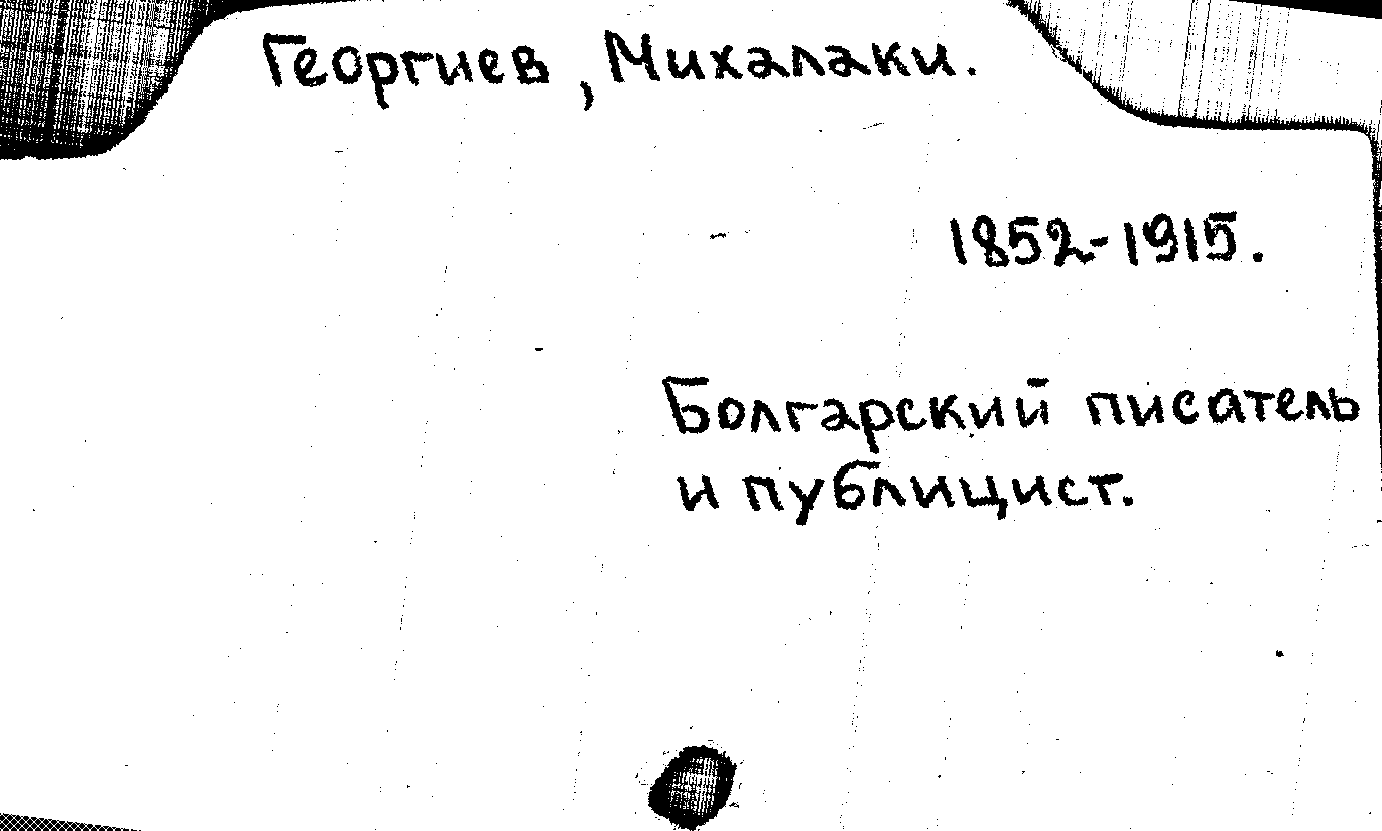 Георгиев, Михалаки.
1852-1915.
Болгарский писатель
и публицист.